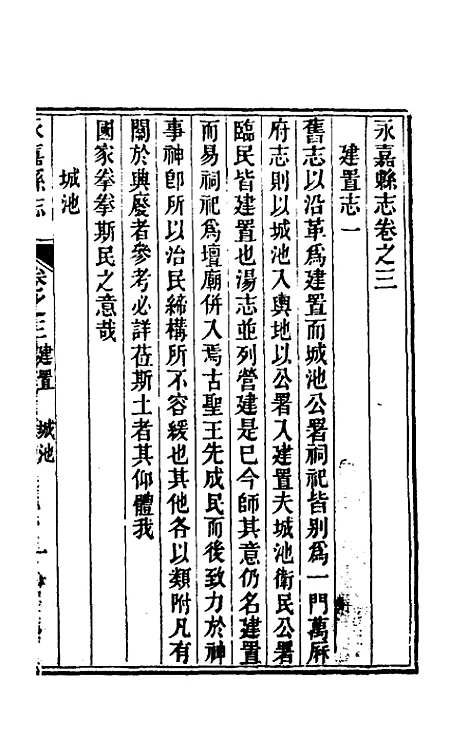 永嘉縣志卷之三
建置志一
舊志以沿革為建置而城池公署祠祀皆別為一門萬厤
府志則以城池入輿地以公署入建置夫城池衛民公署
臨民皆建置也湯志並列營建是已今師其意仍名建置
而易祠祀為壇廟併入焉古聖王先成民而後致力於神
事神卽所以治民締構所不容緩也其他各以類附凡有
關於典廢者參考必詳莅斯土者其仰體我
國家拳拳斯民之意哉
城池
永嘉縣志 卷之三 建置 城池 一